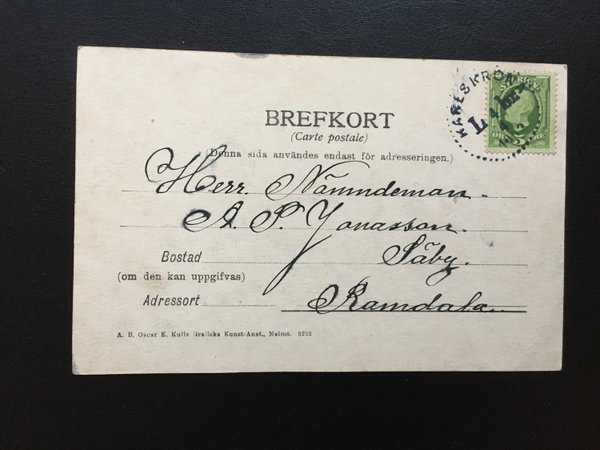 KARLSKRONA
SVERIGE
BREFKORT
(Carte postale)
(Denna sida användes endast för adresseringen.)
Herr. Nämndeman.
A. P. Jonasson.
Bostad
Säby.
(om den kan uppgifvas)
Adressort
Ramdala.
A. B. Oscar E. Kulls Grafiska Konst-Anst., Malmö. 9213